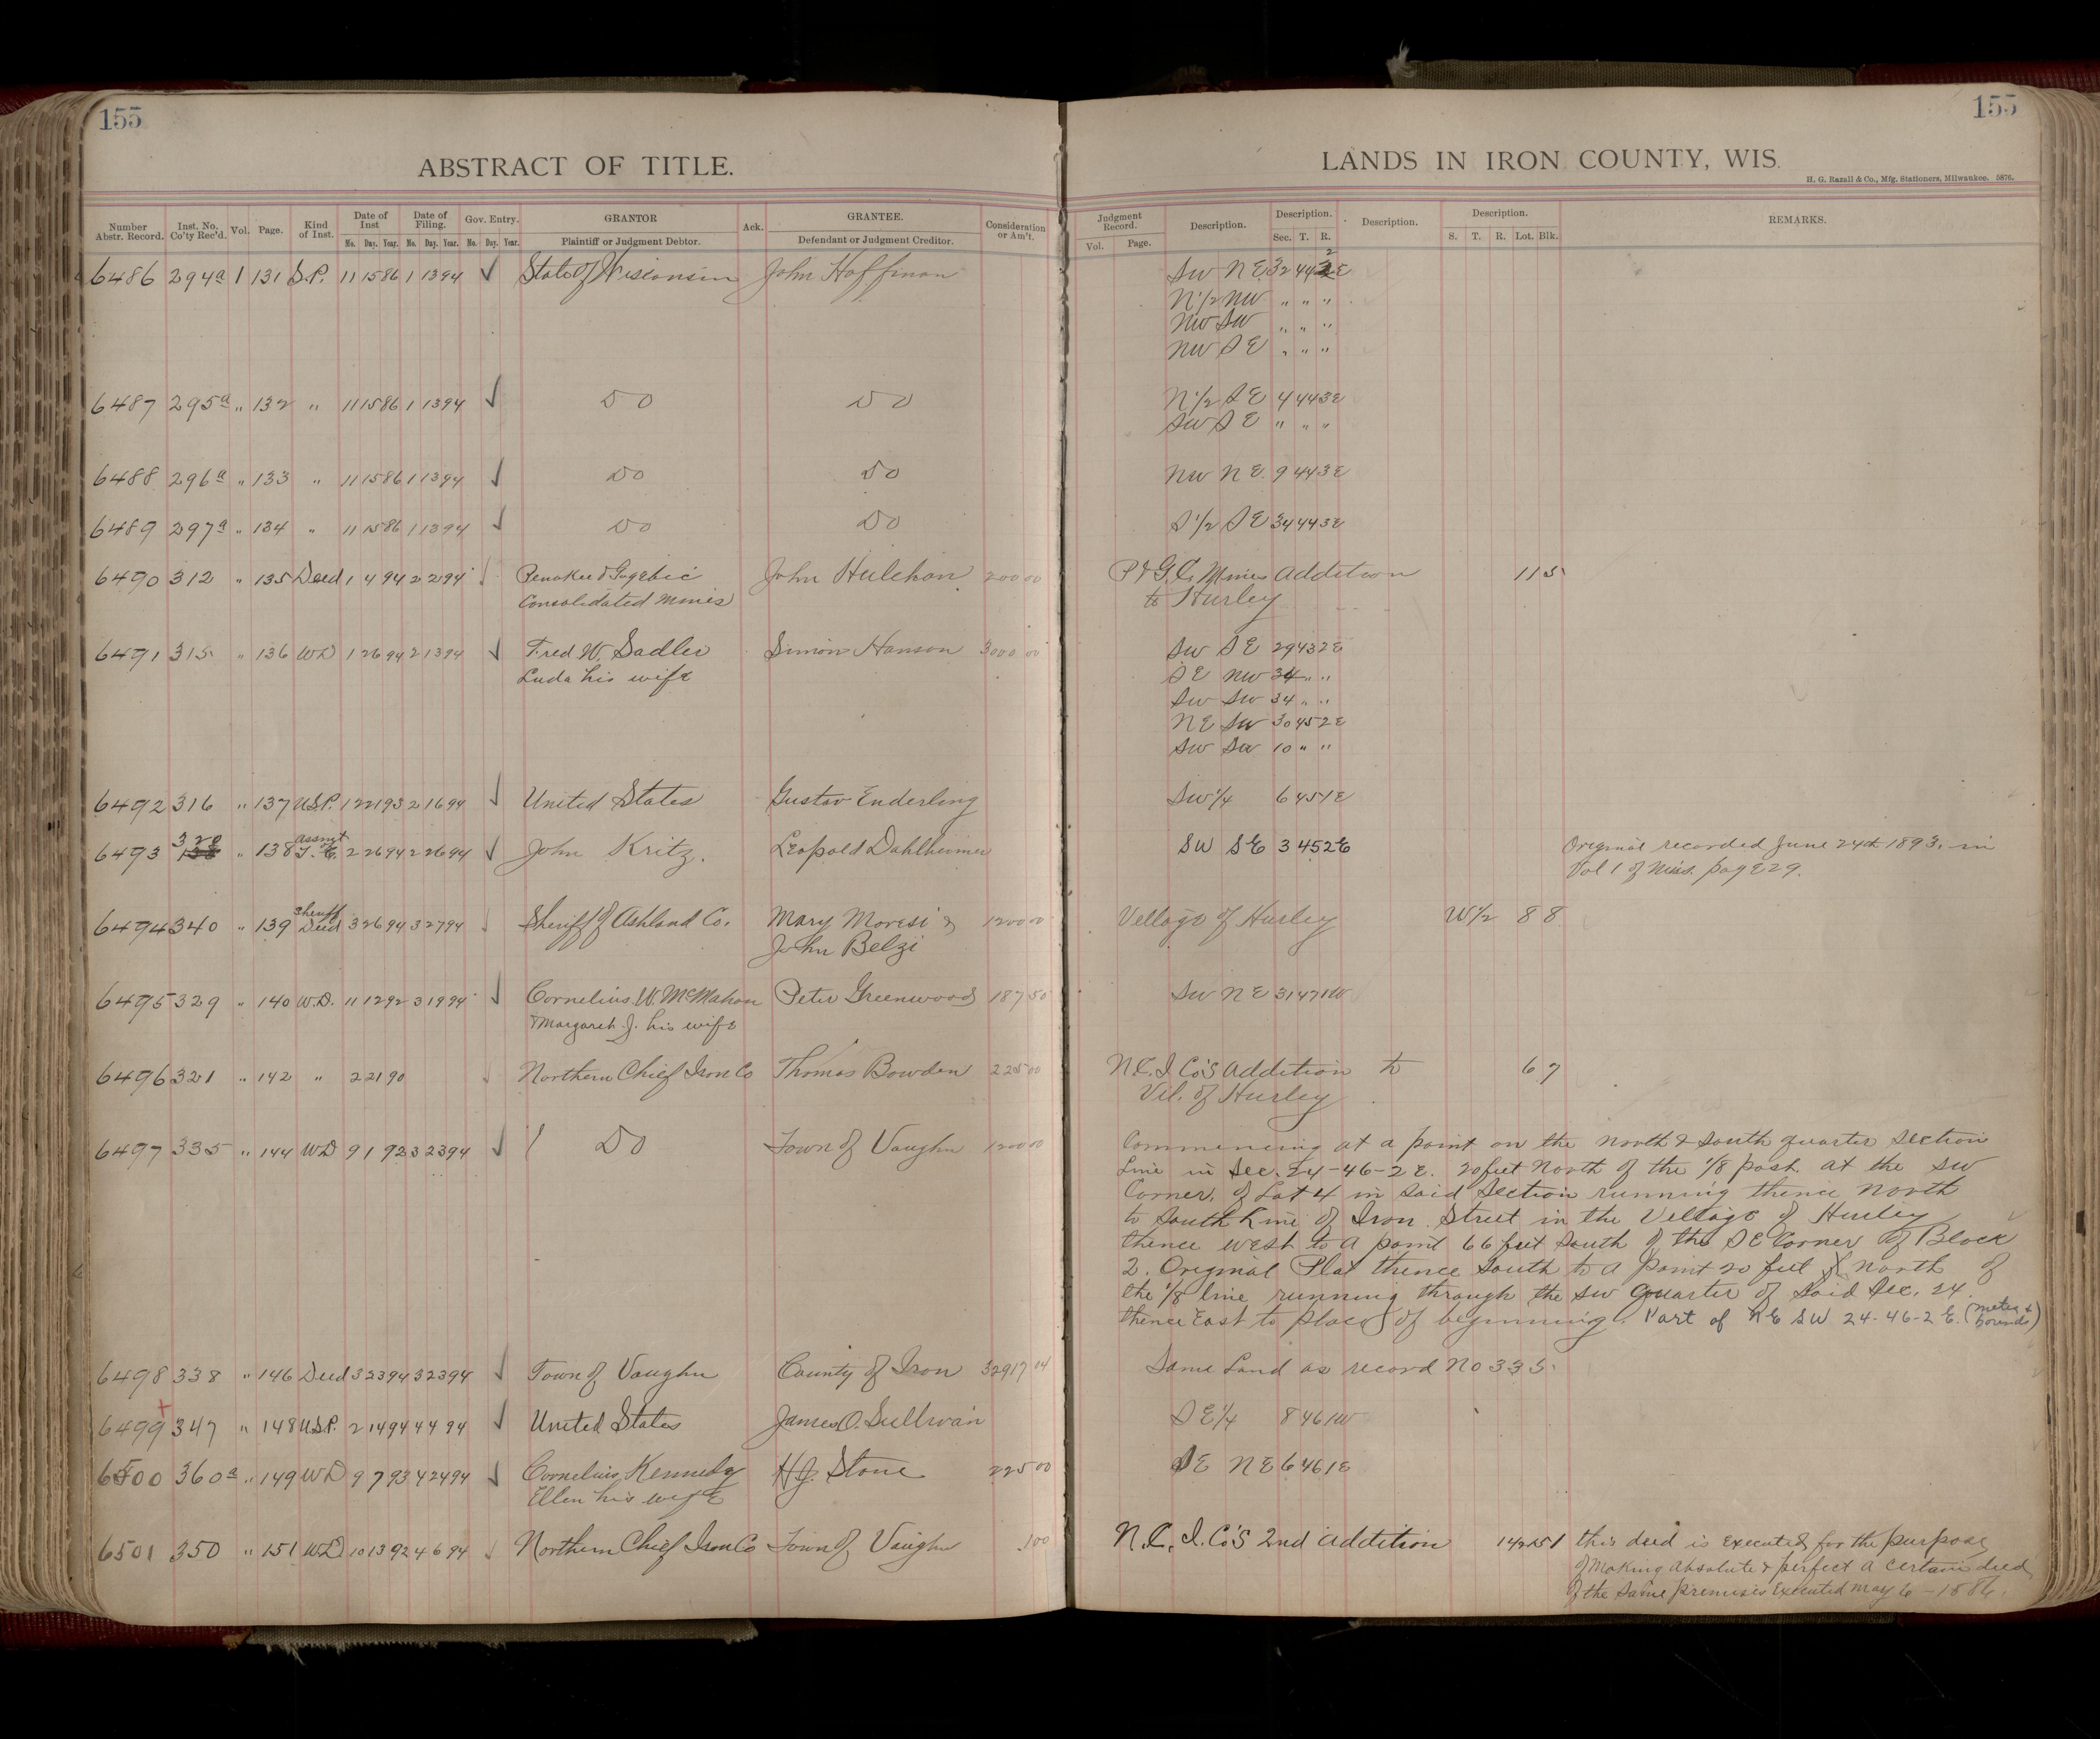 155
155
ABSTRACT OF TITLE.
LANDS IN IRON COUNTY, WIS.
H. G. Razall & Co., Mfg. Stationers, Milwaukee. 5876.
Number Abstr. Record. Inst. No. Co'ty Rec'd. Vol. Page. Kind of Inst. Date of Inst Mo. Day. Year. Date of Filing. Mo. Day. Year. Gov. Entry. Mo. Day. Year. GRANTOR Plaintiff or Judgment Debtor. Ack. GRANTEE. Defendant or Judgment Creditor. Consideration or Am't.
Judgment Record. Vol. Page. Description. Description. Sec. T. R. Description. Description. S. T. R. Lot. Blk. REMARKS.
6486 294a 1 131 S.P. 11 15 86 1 13 94 ✓ State of Wisconsin John Hoffman SW NE 32 44 2 E
N 1/2 NW " " "
NW SW " " "
NW SE " " "
6487 295a " 132 " 11 15 86 1 13 94 ✓ Do Do N 1/2 SE 4 44 3 E
SW SE " " "
6488 296a " 133 " 11 15 86 1 13 94 ✓ Do Do NW NE 9 44 3 E
6489 297a " 134 " 11 15 86 1 13 94 ✓ Do Do S 1/2 SE 34 44 3 E
6490 312 " 135 Deed 1 4 94 2 2 94 ✓ Penokee & Gogebic John Hulehan 200 00 P & G. C. Mines Addition 11 5
Consolidated Mines to Hurley
6491 315 " 136 WD 1 26 94 2 13 94 ✓ Fred W. Sadler Simon Hanson 3000 00 SW SE 29 43 2 E
Luda his wife SE NW 34 " "
SW SW 34 " "
NE SW 30 45 2 E
SW SW 10 " "
6492 316 " 137 U.S.P. 12 21 93 2 16 94 ✓ United States Gustav Enderling SW 1/4 6 45 1 E
6493 320 " 138 Assmt T. C. 2 26 94 2 26 94 ✓ John Kritz. Leopold Dahlheimer SW SE 3 45 2 E Original recorded June 24th 1893. in
Vol 1 of Miss. page 29.
6494 340 " 139 Sheriff Deed 3 26 94 3 27 94 ✓ Sheriff of Ashland Co. Mary Moresi & 1200 00 Village of Hurley W 1/2 8 8
John Belzi
6495 329 " 140 W.D. 11 12 92 3 19 94 ✓ Cornelius W. McMahon Peter Greenwood 187 50 SW NE 31 47 1 W
& Margaret J. his wife
6496 321 " 142 " 2 21 90 ✓ Northern Chief Iron Co Thomas Bowden 225 00 N.C.I. Co's Addition to 6 7
Vil. of Hurley
6497 335 " 144 WD 9 1 92 3 23 94 ✓ Do Town of Vaughn 1200 00 Commencing at a point on the North & South quarter Section
Line in Sec. 24-46-2E. 20 feet North of the 1/8 post at the SW
Corner. of Lot 4 in Said Section running thence North
to South Line of Iron Street in the Village of Hurley
thence west to a point 66 feet South of the SE Corner of Block
2. Original Plat thence South to a point 20 feet North of
the 1/8 line running through the SW Quarter of Said Sec. 24.
thence East to place of beginning. Part of NE SW 24-46-2E. (metes & bounds)
6498 338 " 146 Deed 3 23 94 3 23 94 ✓ Town of Vaughn County of Iron 32917 04 Same Land as record No 335.
6499 347 " 148 U.S.P. 2 14 94 4 4 94 ✓ United States James O. Sullivan SE 1/4 8 46 1 W
6500 360a " 149 WD 9 7 93 4 24 94 ✓ Cornelius Kennedy H. J. Stone 225 00 SE NE 6 46 1 E
Ellen his wife
6501 350 " 151 WD 10 13 92 4 6 94 ✓ Northern Chief Iron Co Town of Vaughn 1 00 N. C. I. Co's 2nd Addition this deed is Executed for the purpose
of Making Absolute & perfect a certain deed
of the Same premises Executed May 6 - 1886.